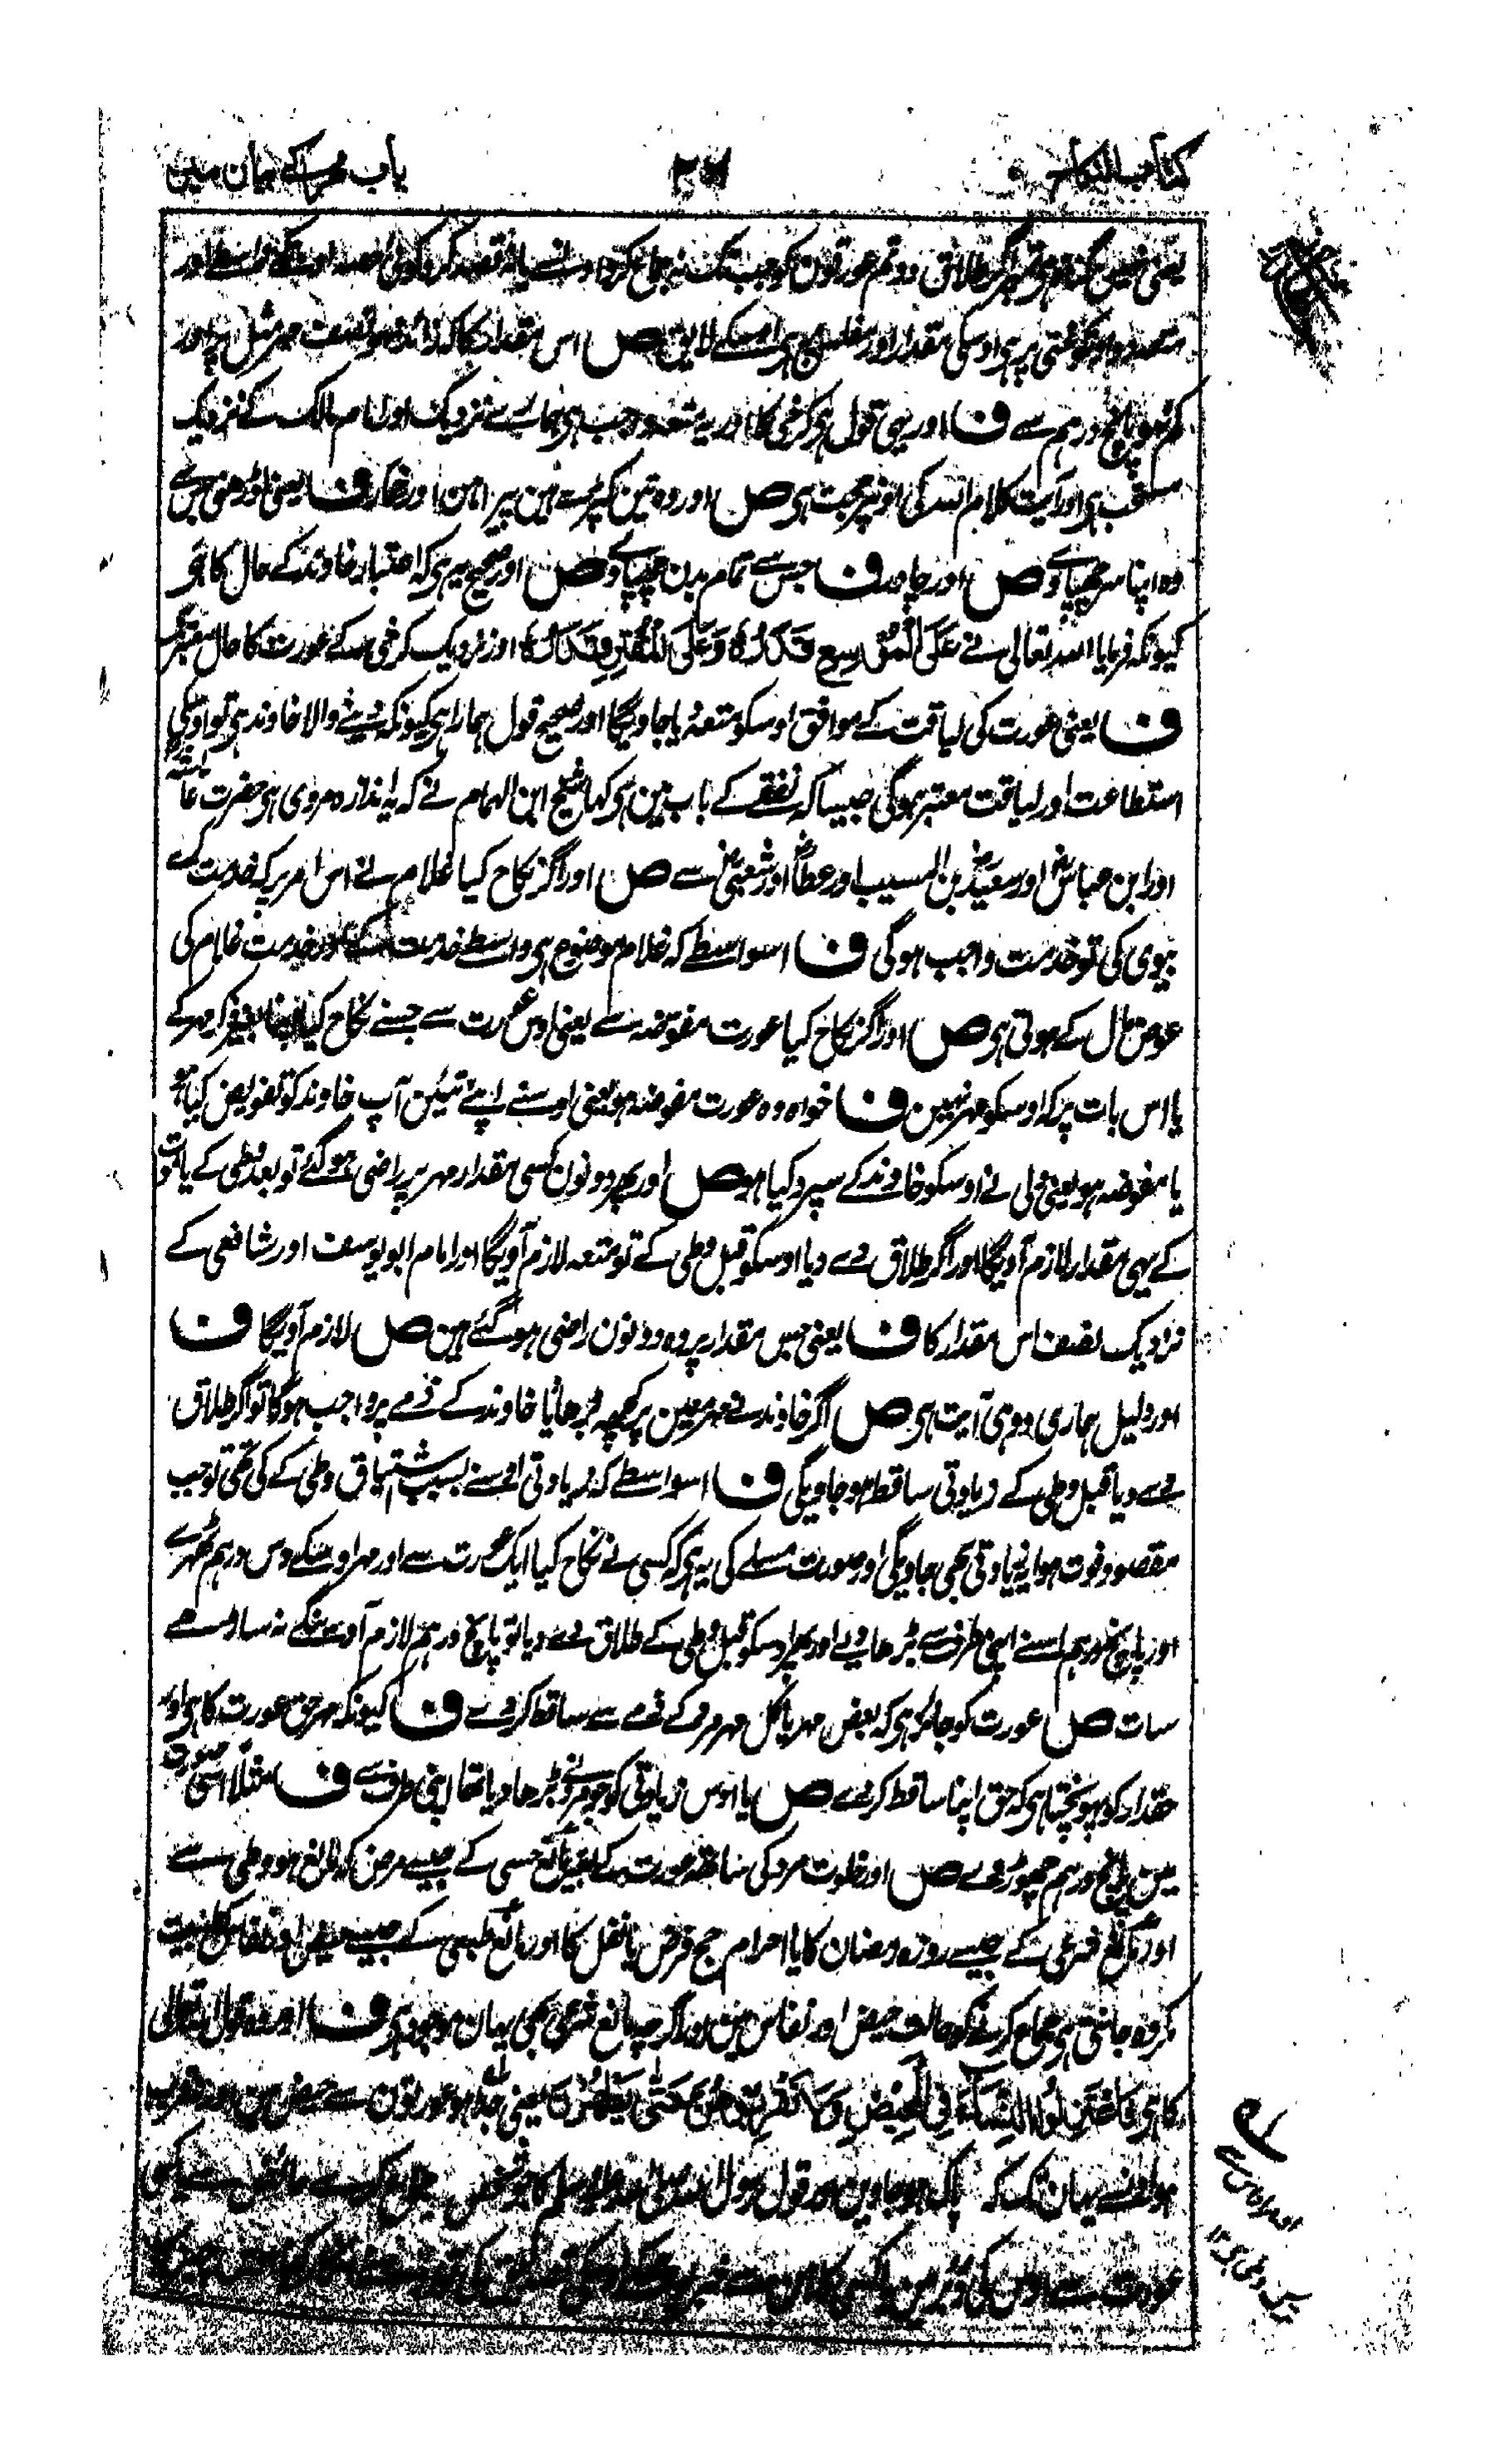 کتاب النکاح
باب مہر کے بیان مین
یعنی نہین گناہ ہی تمپر اگر طلاق دو تم عورتون کو جب تک نہ جماع کرو اونسے یا نہ مقصد کرو کوئی اونکے واسطے اور
متعہ دو اونکو غنی پر ہی اوسکی مقدار اور مفلس پر ہی اوسکے لایق ص اس مقدار کا کہ زائد نہو نصف مہر مثل پر اور
کم نہو پانچ درہم سے ف اور یہی قول ہی کرخی کا اور یہ متعہ واجب ہی ہمارے نزدیک اور امام مالک کے نزدیک
مستحب ہی اور آیت کلام اللہ کی اونپر حجت ہی ص اور وہ تین کپڑے ہین پیراہن اور خمار ف یعنی اوڑھنی جس سے
وہ اپنا سر چھپاوے ص اور چادر ف جس سے تمام بدن چھپاوے ص اور صحیح یہ ہی کہ اعتبار خاوند کے حال کا ہو
کیونکہ فرمایا اللہ تعالی نے عَلَى الْمُوْسِعِ قَدَرُهٗ وَعَلَى الْمُقْتِرِ قَدَرُهٗ اور نزدیک کرخی کے عورت کا حال معتبر ہی
ف یعنی عورت کی لیاقت کے موافق اوسکو متعہ دیا جاویگا اور صحیح قول ہمارا ہی کیونکہ دینے والا خاوند ہی تو اوسکی
استطاعت اور لیاقت معتبر ہوگی جیسا کہ نفقے کے باب مین ہی کہا شیخ ابن الہمام نے کہ یہ اندازہ مروی ہی حضرت عائشہ
اور ابن عباس اور سعید بن المسیب اور عطا اور شعبی سے ص اور اگر نکاح کیا غلام نے اس امر پر کہ خدمت کرے
بیوی کی تو خدمت واجب ہوگی ف اسواسطے کہ غلام موضوع ہی واسطے خدمت کے اور خدمت غلام کی
عوض مال کے ہوتی ہی ص اور اگر نکاح کیا عورت مفوضہ سے یعنی اوس عورت سے جسنے نکاح کیا اپنا بغیر ذکر مہر کے
یا اس بات پر کہ اوسکو مہر نہین ف خواہ وہ عورت مفوضہ ہو یعنی اوسنے اپنے تئین آپ خاوند کو تفویض کیا ہو
یا مفوضہ ہو یعنی ولی نے اوسکو خاوند کے سپرد کیا ہو ص اور پھر دونون کسی مقدار مہر پر راضی ہوگئے تو بعد وطی کے یا موت
کے یہی مقدار لازم آویگا اور اگر طلاق دے دیا اوسکو قبل وطی کے تو متعہ لازم آویگا اور امام ابو یوسف اور شافعی کے
نزدیک نصف اس مقدار کا ف یعنی جس مقدار پر وہ دونون راضی ہوگئے ہین ص لازم آویگا ف
اور دلیل ہماری وہی آیت ہی ص اگر خاوند نے مہر معین پر کچھ بڑھایا خاوند کے ذمے پر واجب ہوگا تو اگر طلاق
دے دیا قبل وطی کے زیادتی ساقط ہو جاویگی ف اسواسطے کہ زیادتی اوسنے بسبب اشتیاق وطی کے کی تھی تو جب
مقصود فوت ہوا یہ زیادتی بھی جاویگی اور صورت مسئلے کی یہ ہی کہ کسی نے نکاح کیا ایک عورت سے اور مہر اوسکے دس درہم ٹھہرے
اور پانچ درہم اسنے اپنی طرف سے بڑھا دیے اور پھر اوسکو قبل وطی کے طلاق دے دیا تو پانچ درہم لازم آوینگے نہ ساڑھے
سات ص عورت کو جائز ہی کہ بعض مہر یا کل مہر مرد کے ذمے سے ساقط کر دے ف کیونکہ مہر حق عورت کا ہی اور
حقدار کو پہونچتا ہی کہ حق اپنا ساقط کر دے ص یا اوس زیادتی کو جو مرد نے بڑھا دیا تھا اپنی طرف سے ف مثلا اسی صورت
مین پانچ درہم چھوڑ دے ص اور خلوت مرد کی ساتھ عورت کے بغیر مانع حسی کے جیسے مرض کہ مانع ہو وطی سے
اور مانع شرعی کے جیسے روزہ رمضان کا یا احرام حج فرض یا نفل کا اور مانع طبعی کے جیسے حیض اور نفاس کہ طبیعت
مکروہ جانتی ہی جماع کرنے کو حالت حیض اور نفاس مین اور اگرچہ مانع شرعی بھی یہان موجود ہی ف اور وہ قول اللہ تعالی
کا ہی فَاعْتَزِلُوا النِّسَآءَ فِی الْمَحِیْضِ وَلَا تَقْرَبُوْهُنَّ حَتّٰی یَطْهُرْنَ یعنی جدا ہو عورتون سے حیض مین اور نہ قریب
ہو اونسے یہان تک کہ پاک ہو جاوین اور قول رسول اللہ صلی اللہ علیہ وسلم کا جو شخص جماع کرے حائض سے یا کسی
عورت سے اوسکی دبر مین یا کسی کاہن